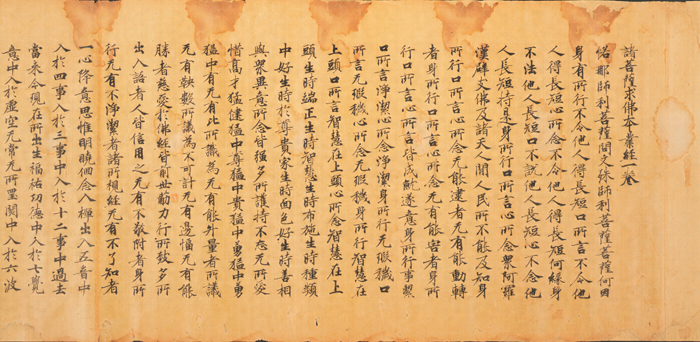 諸菩薩求佛本業經一卷
偌那師利菩薩問文殊師利菩薩菩薩何因
身有所行不令他人得長短口所言不令他
人得長短心所念不令他人得長短何緣身
不法他人長短口不說他人長短心不念他
人長短持是身所行口所言心所念眾阿羅
漢辟支佛及諸天人間人民所不能及知身
所行口所言心所念无能逮者无有能動轉
者身所行口所言心所念无有能害者身所
行口所言心所念皆遂意身所行事潔
口所言淨潔心所念淨潔身所行无瑕穢口
所言无瑕穢心所念无瑕穢身所行智慧在
上頭口所言智慧在上頭心所念智慧在上
頭生時端正生時智慧生時布施生時種類
中好生時於尊貴家生時面色好生時善相
與眾異意所念皆強多所護持不忘无所愛
惜高才猛健猛中尊猛中貴猛中勇猛中勇
猛中有无有比所議為无有能外量者所議
无有軼數所議為不可計无有邊幅无有能
勝者慈哀於佛經皆前世勤力行所致多所
出入語者人皆信用之无有不敬附者身所
行无有不淨潔者諸所視經无有不了知者
一心降意思惟明曉念入禪出入五音中
入於四事入於三事中入於十二事中過去
當來今現在所出生福祐功德中入於七覺
意中入於虛空无常无所罣閡中入於六波